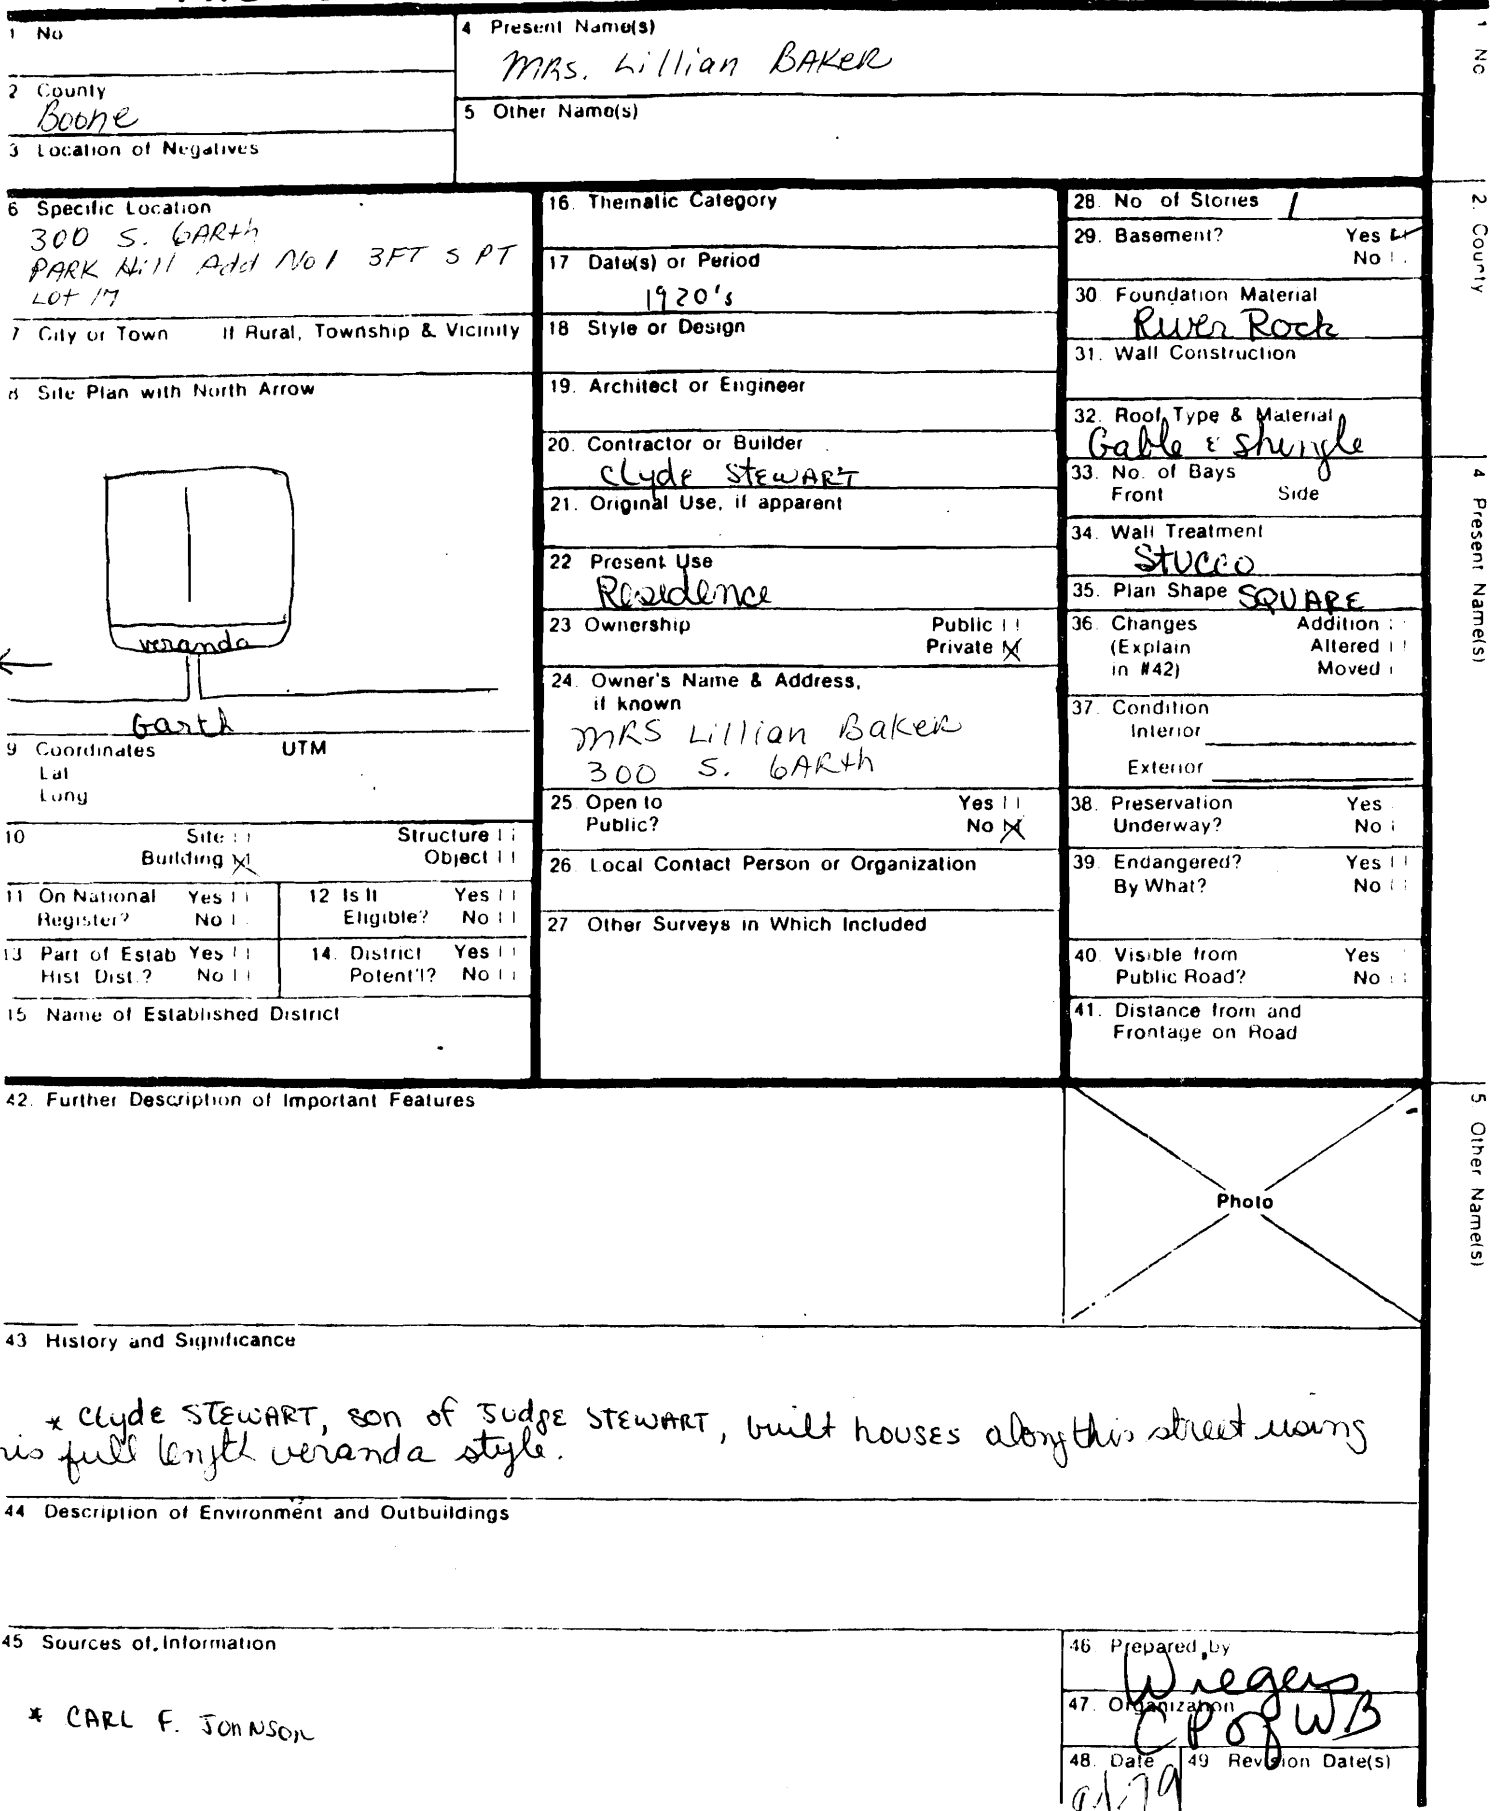 1 No
4 Present Name(s)
MRS. Lillian BAKER
2 County
Boone
5 Other Name(s)
3 Location of Negatives
6 Specific Location
300 S. GARth
PARK Hill Add No 1 3FT S PT
LOT 17
7 City or Town If Rural, Township & Vicinity
8 Site Plan with North Arrow
veranda
Garth
9 Coordinates UTM
Lat
Long
10 Site Structure
Building X Object
11 On National Register? Yes No
12 Is It Eligible? Yes No
13 Part of Estab Hist Dist.? Yes No
14. District Potent'l? Yes No
15 Name of Established District
16. Thematic Category
17 Date(s) or Period
1920's
18 Style or Design
19. Architect or Engineer
20. Contractor or Builder
Clyde STEWART
21. Original Use, if apparent
22 Present Use
Residence
23 Ownership Public
Private X
24. Owner's Name & Address,
if known
MRS Lillian Baker
300 S. GARth
25 Open to Yes
Public? No X
26. Local Contact Person or Organization
27 Other Surveys in Which Included
28. No of Stories 1
29. Basement? Yes ✓
No
30 Foundation Material
River Rock
31. Wall Construction
32. Roof Type & Material
Gable & Shingle
33. No. of Bays
Front Side
34. Wall Treatment
Stucco
35. Plan Shape SQUARE
36. Changes Addition
(Explain Altered
in #42) Moved
37. Condition
Interior
Exterior
38. Preservation Yes
Underway? No
39. Endangered? Yes
By What? No
40. Visible from Yes
Public Road? No
41. Distance from and
Frontage on Road
42. Further Description of Important Features
Photo
43 History and Significance
* Clyde STEWART, son of Judge STEWART, built houses along this street using
his full length veranda style.
44 Description of Environment and Outbuildings
45 Sources of Information
* CARL F. JOHNSON
46 Prepared by
Wiegers
47. Organization
CP of WB
48. Date
49 Revision Date(s)
1 No
2. County
4 Present Name(s)
5 Other Name(s)